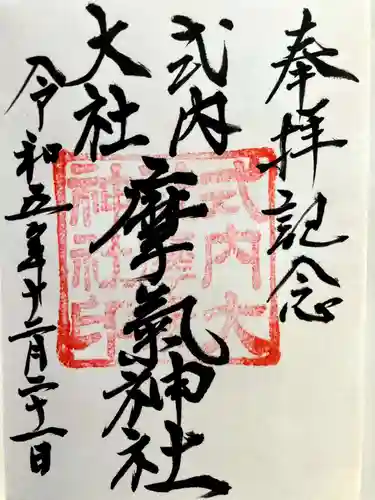 奉拝記念
式内
大社
摩氣神社
令和五年十二月二十一日
式内大
社摩氣
神社印